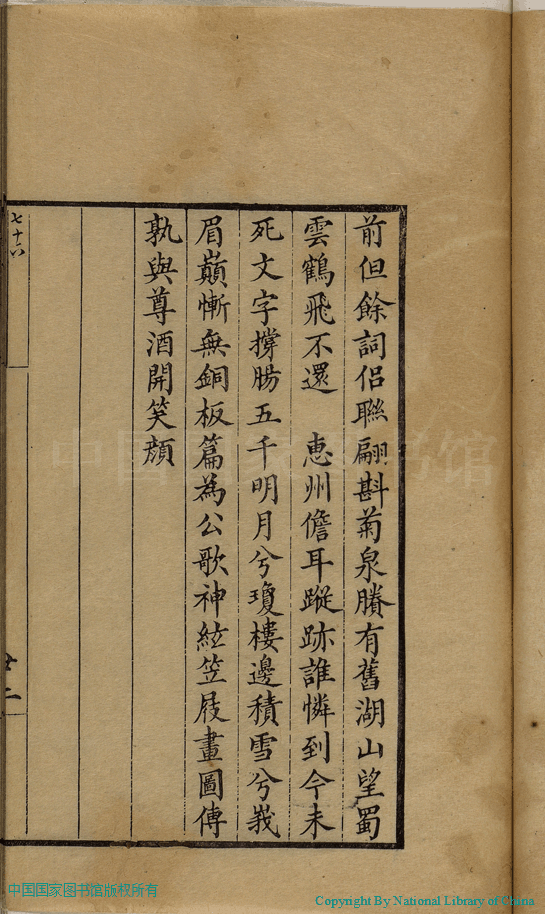 前但餘詞侶聯翩斟菊泉賸有舊湖山望蜀
雲鶴飛不還　惠州儋耳蹤跡誰憐到今未
死文字撐腸五千明月兮瓊樓邊積雪兮峩
眉巔慚無銅板篇為公歌神絃笠屐畫圖傳
孰與尊酒開笑顏
七十六
廿二
中国国家图书馆
中国国家图书馆版权所有
Copyright By National Library of China